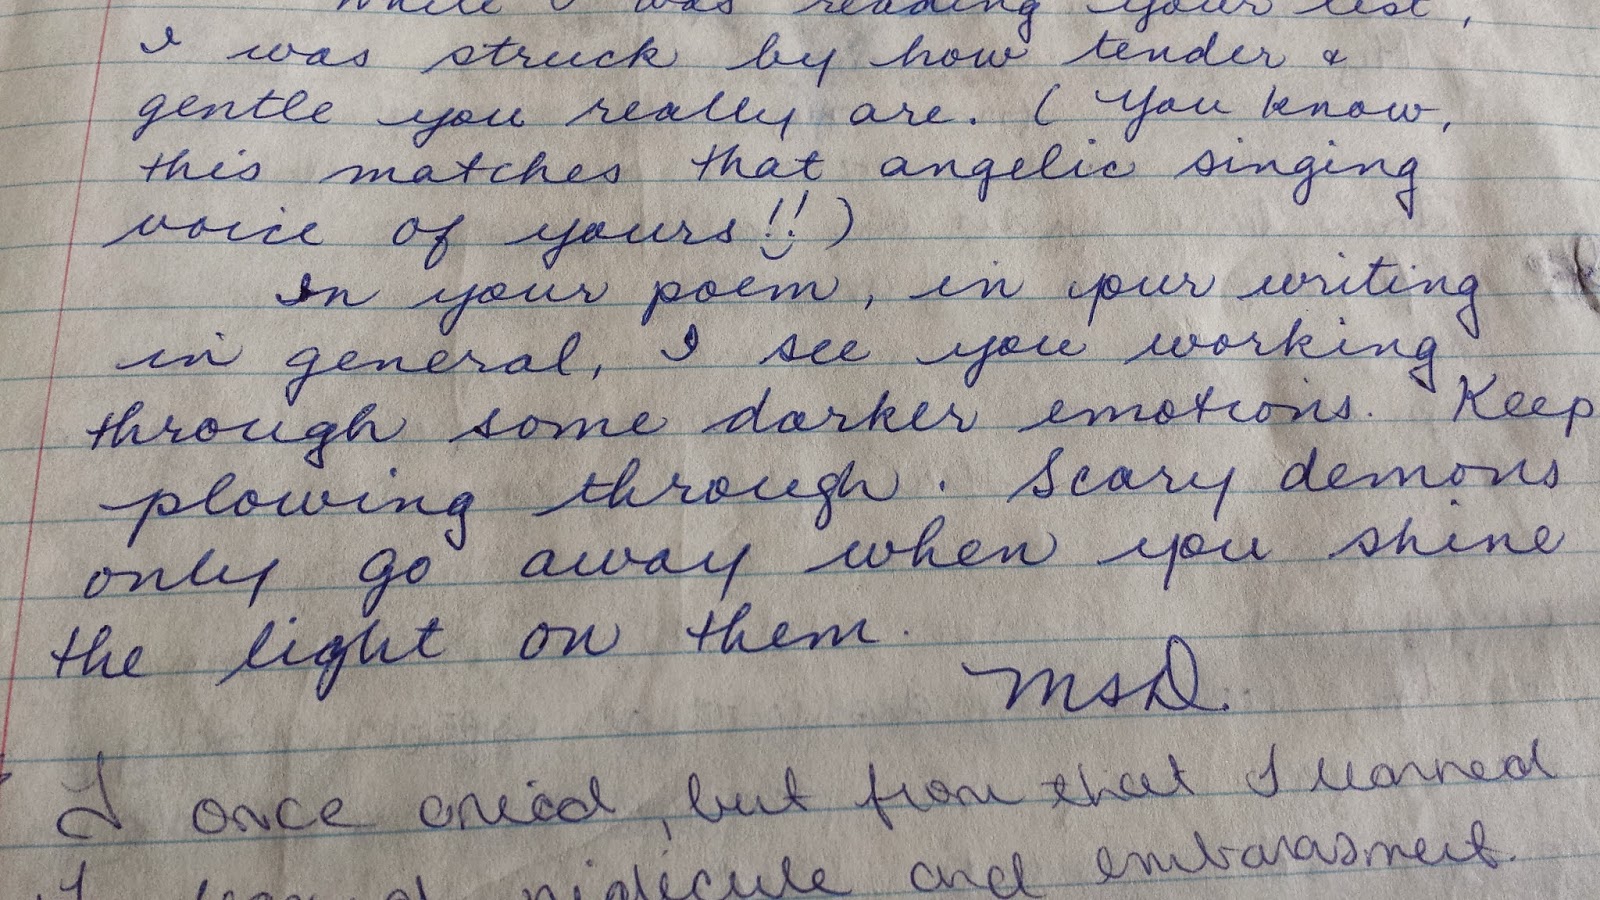 While I was reading your list,
I was struck by how tender &
gentle you really are. (You know,
this matches that angelic singing
voice of yours!!)
In your poem, in your writing
in general, I see you working
through some darker emotions. Keep
plowing through. Scary demons
only go away when you shine
the light on them.
MsD.
I once cried, but from that I learned
I ridicule and embarasment.